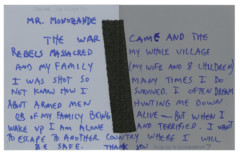 MR. MONOBANDE
THE WAR CAME AND THE
REBELS MASSACRED MY WHOLE VILLAGE
AND MY FAMILY (MY WIFE AND 8 CHILDREN)
I WAS SHOT SO MANY TIMES I DO
NOT KNOW HOW I SURVIVED. I OFTEN DREAM
ABOUT ARMED MEN HUNTING ME DOWN
OR OF MY FAMILY BEING ALIVE - BUT WHEN I
WAKE UP I AM ALONE AND TERRIFIED. I WANT
TO ESCAPE TO ANOTHER COUNTRY WHERE I WILL
BE SAFE. THANK YOU